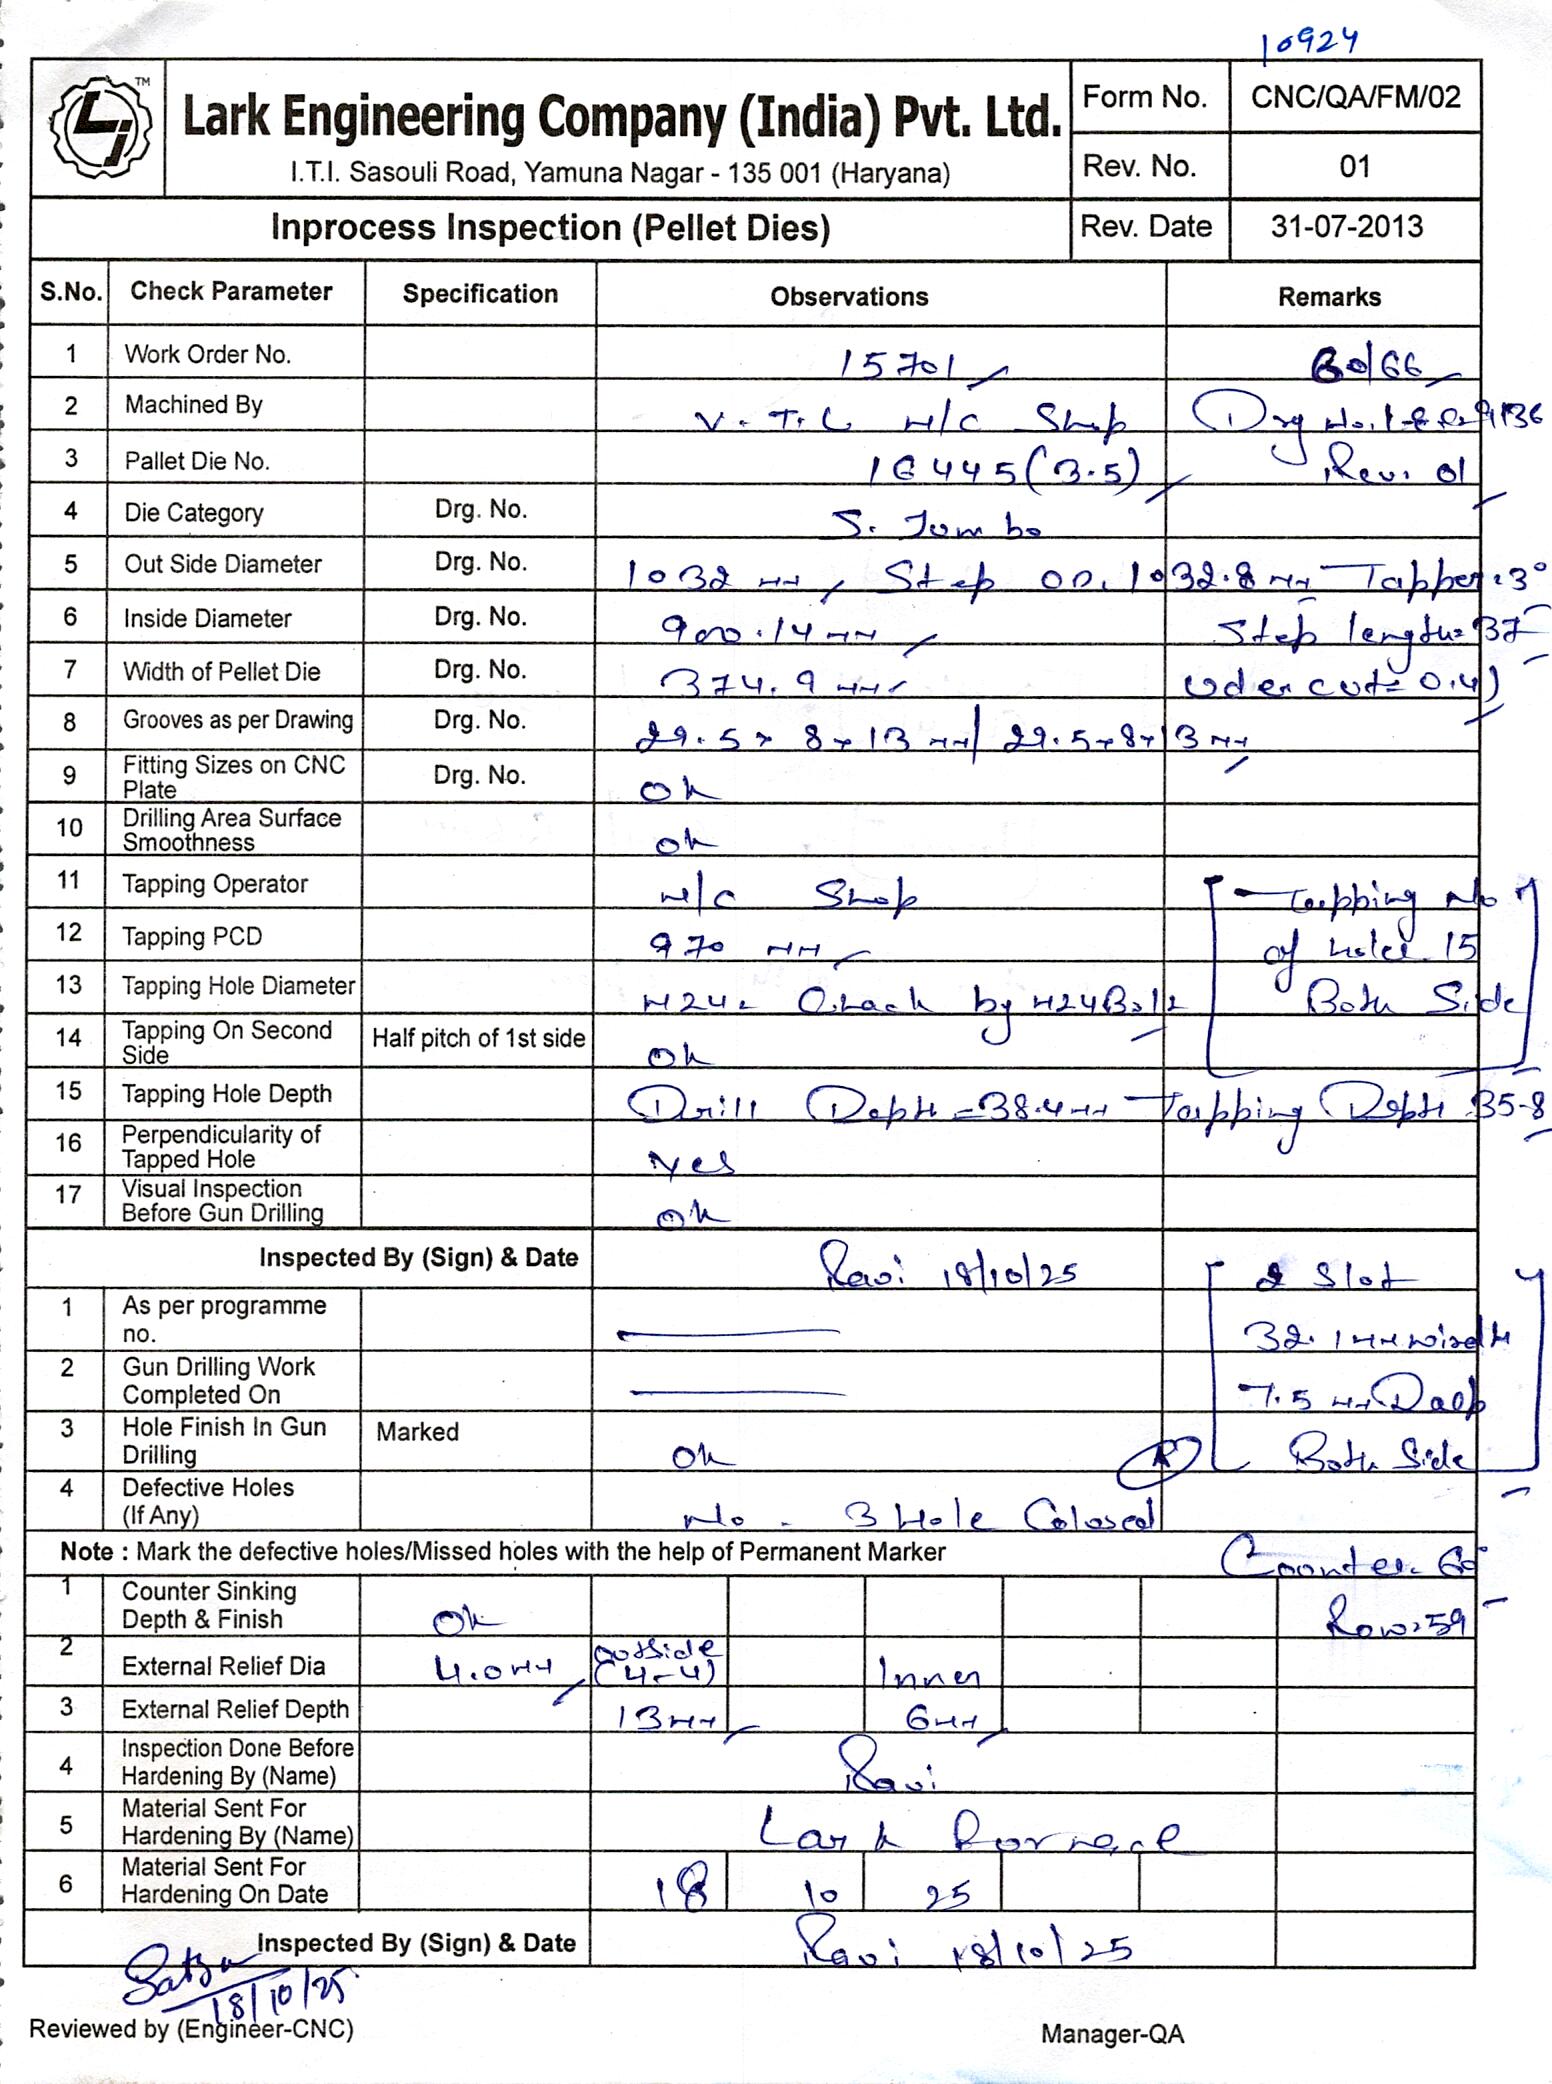 10924
TM
Lark Engineering Company (India) Pvt. Ltd.
I.T.I. Sasouli Road, Yamuna Nagar - 135 001 (Haryana)
Form No. CNC/QA/FM/02
Rev. No. 01
Inprocess Inspection (Pellet Dies) Rev. Date 31-07-2013
S.No. Check Parameter Specification Observations Remarks
1 Work Order No. 15701 60/66
2 Machined By V.T.L M/C Shop Drg No. 9136
3 Pallet Die No. 16445(3.5) Rev. 01
4 Die Category Drg. No. S. Jumbo
5 Out Side Diameter Drg. No. 1032 MM, Step OD. 1032.8 MM Tapper:3°
6 Inside Diameter Drg. No. 900.14 MM Step length=37
7 Width of Pellet Die Drg. No. 374.9 MM Uder cut=0.4)
8 Grooves as per Drawing Drg. No. 29.5x8x13 MM/ 29.5x8x13 MM
9 Fitting Sizes on CNC Plate Drg. No. Ok
10 Drilling Area Surface Smoothness Ok
11 Tapping Operator M/C Shop Tapping No
12 Tapping PCD 970 MM of holes 15
13 Tapping Hole Diameter M24. Chack by M24 Bolt Both Side
14 Tapping On Second Side Half pitch of 1st side Ok
15 Tapping Hole Depth Drill Depth=38.4 MM Tapping Depth:35.8
16 Perpendicularity of Tapped Hole Yes
17 Visual Inspection Before Gun Drilling Ok
Inspected By (Sign) & Date Ravi 18/10/25 2 Slot
1 As per programme no. 32.1 MM Widh
2 Gun Drilling Work Completed On 7.5 MM Daep
3 Hole Finish In Gun Drilling Marked Ok R Both Side
4 Defective Holes (If Any) No - 3 Hole Colosed
Note : Mark the defective holes/Missed holes with the help of Permanent Marker Counter-60°
1 Counter Sinking Depth & Finish Ok Row=59
2 External Relief Dia 4.0 MM outside (4-4) Inner
3 External Relief Depth 13 MM 6 MM
4 Inspection Done Before Hardening By (Name) Ravi
5 Material Sent For Hardening By (Name) Lark Fornace
6 Material Sent For Hardening On Date 18 10 25
Inspected By (Sign) & Date Ravi 18/10/25
18/10/25
Reviewed by (Engineer-CNC) Manager-QA